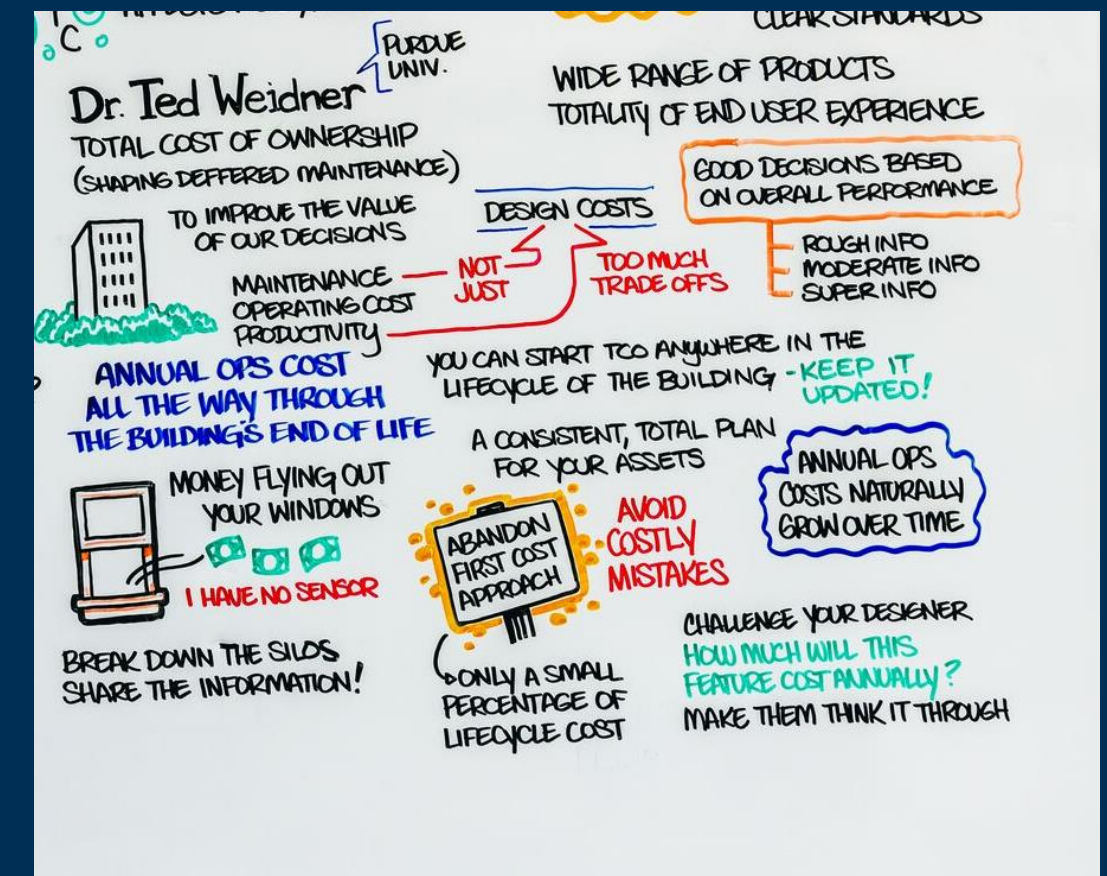 C
CLEAR STANDARDS
PURDUE
UNIV.
Dr. Ted Weidner
TOTAL COST OF OWNERSHIP
(SHAPING DEFFERED MAINTENANCE)
WIDE RANGE OF PRODUCTS
TOTALITY OF END USER EXPERIENCE
GOOD DECISIONS BASED
ON OVERALL PERFORMANCE
ROUGH INFO
MODERATE INFO
SUPER INFO
TO IMPROVE THE VALUE
OF OUR DECISIONS
DESIGN COSTS
MAINTENANCE
OPERATING COST
PRODUCTIVITY
NOT
JUST
TOO MUCH
TRADE OFFS
ANNUAL OPS COST
ALL THE WAY THROUGH
THE BUILDING'S END OF LIFE
YOU CAN START TCO ANYWHERE IN THE
LIFECYCLE OF THE BUILDING - KEEP IT
UPDATED!
A CONSISTENT, TOTAL PLAN
FOR YOUR ASSETS
ANNUAL OPS
COSTS NATURALLY
GROW OVER TIME
MONEY FLYING OUT
YOUR WINDOWS
I HAVE NO SENSOR
ABANDON
FIRST COST
APPROACH
AVOID
COSTLY
MISTAKES
BREAK DOWN THE SILOS
SHARE THE INFORMATION!
ONLY A SMALL
PERCENTAGE OF
LIFECYCLE COST
CHALLENGE YOUR DESIGNER
HOW MUCH WILL THIS
FEATURE COST ANNUALLY?
MAKE THEM THINK IT THROUGH